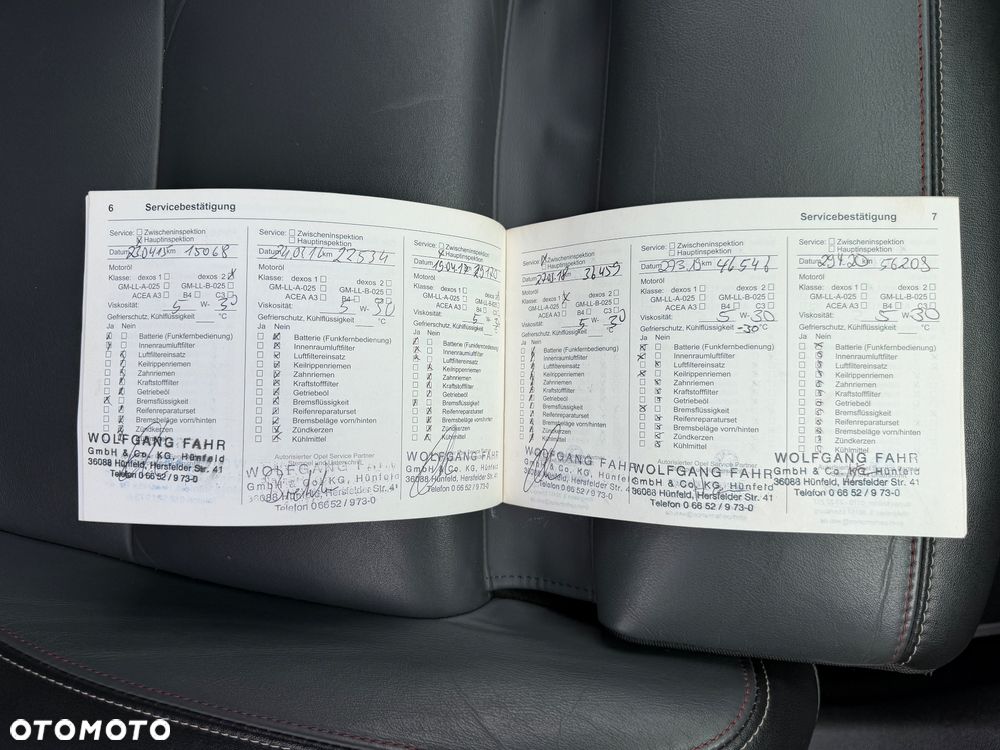 6 Servicebestätigung
Service: Zwischeninspektion
Hauptinspektion
Datum 15068
Motoröl
Klasse: dexos 1 dexos 2
GM-LL-A-025 GM-LL-B-025
ACEA A3 B4 C3
Viskosität: 5 W- 30
Gefrierschutz, Kühlflüssigkeit °C
Ja Nein
Batterie (Funkfernbedienung)
Innenraumluftfilter
Luftfiltereinsatz
Keilrippenriemen
Zahnriemen
Kraftstofffilter
Getriebeöl
Bremsflüssigkeit
Reifenreparaturset
Bremsbeläge vorn/hinten
Zündkerzen
WOLFGANG FAHR
GmbH & Co. KG, Hünfeld
36088 Hünfeld, Hersfelder Str. 41
Telefon 0 66 52 / 9 73-0
Service: Zwischeninspektion
Hauptinspektion
Datum km 22534
Motoröl
Klasse: dexos 1 dexos 2
GM-LL-A-025 GM-LL-B-025
ACEA A3 B4 C3
Viskosität: 5 W- 30
Gefrierschutz, Kühlflüssigkeit °C
Ja Nein
Batterie (Funkfernbedienung)
Innenraumluftfilter
Luftfiltereinsatz
Keilrippenriemen
Zahnriemen
Kraftstofffilter
Getriebeöl
Bremsflüssigkeit
Reifenreparaturset
Bremsbeläge vorn/hinten
Zündkerzen
Kühlmittel
Autorisierter Opel Service Partner
WOLFGANG FAHR
GmbH & Co. KG, Hünfeld
36088 Hünfeld, Hersfelder Str. 41
Telefon 0 66 52 / 9 73-0
Service: Zwischeninspektion
Hauptinspektion
Datum
Motoröl
Klasse: dexos 1 dexos 2
GM-LL-A-025 GM-LL-B-025
ACEA A3 B4 C3
Viskosität: 5 W- 30
Gefrierschutz, Kühlflüssigkeit
Ja Nein
Batterie (Funkfernbedienung)
Innenraumluftfilter
Luftfiltereinsatz
Keilrippenriemen
Zahnriemen
Kraftstofffilter
Getriebeöl
Bremsflüssigkeit
Reifenreparaturset
Bremsbeläge vorn/hinten
Zündkerzen
Kühlmittel
WOLFGANG FAHR
GmbH & Co. KG, Hünfeld
36088 Hünfeld, Hersfelder Str. 41
Telefon 0 66 52 / 9 73-0
Servicebestätigung 7
Service: Zwischeninspektion
Hauptinspektion
Datum 36455
Motoröl
Klasse: dexos 1 dexos 2
GM-LL-A-025 GM-LL-B-025
ACEA A3 B4 C3
Viskosität: 5 W- 30
Gefrierschutz, Kühlflüssigkeit
Ja Nein
Batterie (Funkfernbedienung)
Innenraumluftfilter
Luftfiltereinsatz
Keilrippenriemen
Zahnriemen
Kraftstofffilter
Getriebeöl
Bremsflüssigkeit
Reifenreparaturset
Bremsbeläge vorn/hinten
Zündkerzen
Kühlmittel
WOLFGANG FAHR
GmbH & Co. KG, Hünfeld
36088 Hünfeld, Hersfelder Str. 41
Telefon 0 66 52 / 9 73-0
Service: Zwischeninspektion
Hauptinspektion
Datum 27.3.19 km 46546
Motoröl
Klasse: dexos 1 dexos 2
GM-LL-A-025 GM-LL-B-025
ACEA A3 B4 C3
Viskosität: 5 W- 30
Gefrierschutz, Kühlflüssigkeit -30 °C
Ja Nein
Batterie (Funkfernbedienung)
Innenraumluftfilter
Luftfiltereinsatz
Keilrippenriemen
Zahnriemen
Kraftstofffilter
Getriebeöl
Bremsflüssigkeit
Reifenreparaturset
Bremsbeläge vorn/hinten
Zündkerzen
Kühlmittel
Autorisierter Opel Service Partner
WOLFGANG FAHR
GmbH & Co. KG, Hünfeld
36088 Hünfeld, Hersfelder Str. 41
Telefon 0 66 52 / 9 73-0
Service: Zwischeninspektion
Hauptinspektion
Datum 29.4.20 km 56209
Motoröl
Klasse: dexos 1 dexos 2
GM-LL-A-025 GM-LL-B-025
ACEA A3 B4 C3
Viskosität: 5 W- 30
Gefrierschutz, Kühlflüssigkeit °C
Ja Nein
Batterie (Funkfernbedienung)
Innenraumluftfilter
Luftfiltereinsatz
Keilrippenriemen
Zahnriemen
Kraftstofffilter
Getriebeöl
Bremsflüssigkeit
Reifenreparaturset
Bremsbeläge vorn/hinten
Zündkerzen
Kühlmittel
WOLFGANG FAHR
GmbH & Co. KG, Hünfeld
36088 Hünfeld, Hersfelder Str. 41
Telefon 0 66 52 / 9 73-0
OTOMOTO